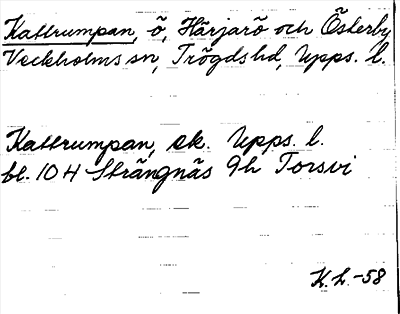 Kattrumpan, ö, Härjarö och Österby
Veckholms sn, Trögds hd, Upps. l.
Kattrumpan, ek. Upps. l.
bl. 104 Strängnäs 9h Torsvi
K.L.-58